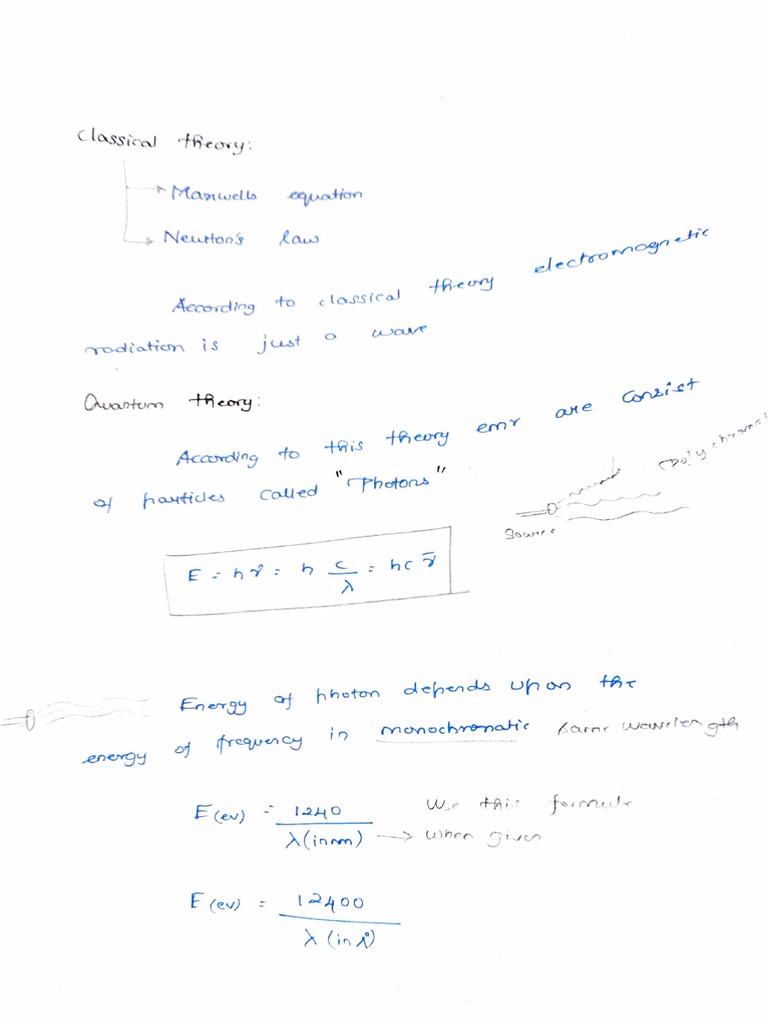 Classical theory:
Maxwells equation
Newton's law
According to classical theory electromagnetic
radiation is just a wave
Quantum theory:
According to this theory emr are consist
of particles called "Photons"
Source
E = hν = h c/λ = hc ν̄
Energy of photon depends upon the
energy of frequency in monochromatic same wavelength
E(ev) = 1240/λ(in nm) → Use this formula when given
E(ev) = 12400/λ(in Å)